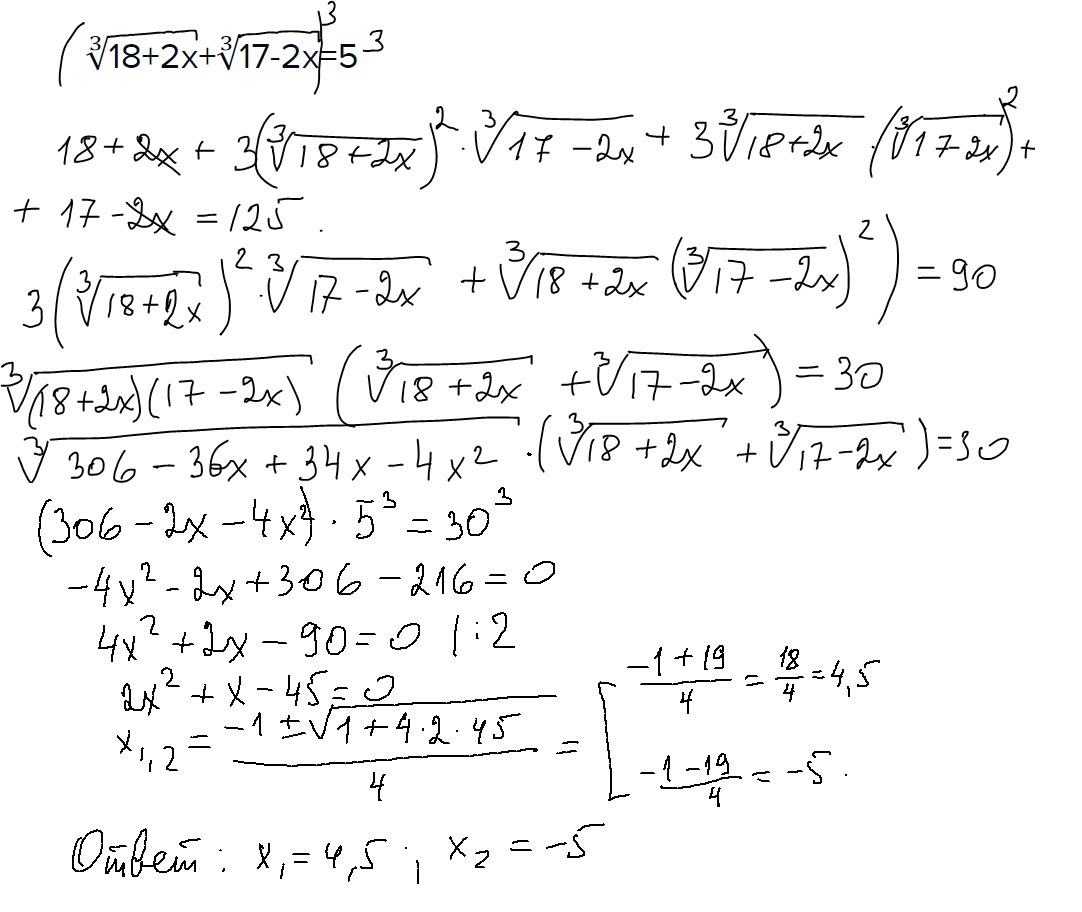 (∛(18+2x)+∛(17-2x))³=5³
18+2x + 3(∛(18+2x))²·∛(17-2x) + 3∛(18+2x)·(∛(17-2x))² +
+ 17-2x = 125.
3(∛(18+2x))²·∛(17-2x) + ∛(18+2x)(∛(17-2x))²) = 90
∛((18+2x)(17-2x)) (∛(18+2x) + ∛(17-2x)) = 30
∛(306-36x+34x-4x²)·(∛(18+2x) + ∛(17-2x)) = 30
(306-2x-4x²)·5³ = 30³
-4x²-2x+306-216=0
4x²+2x-90=0 |:2
2x²+x-45=0
x₁,₂ = (-1±√(1+4·2·45))/4 = [ (-1+19)/4 = 18/4 = 4,5
(-1-19)/4 = -5.
Ответ: x₁=4,5; x₂=-5